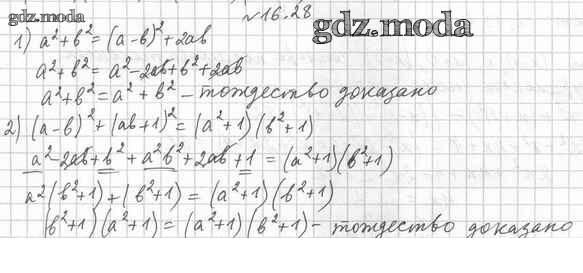 gdz.moda
№16.28
gdz.moda
1) a²+b² = (a-b)²+2ab
a²+b² = a²-2ab+b²+2ab
a²+b² = a²+b² - тождество доказано
2) (a-b)²+(ab+1)² = (a²+1)(b²+1)
a²-2ab+b²+a²b²+2ab+1 = (a²+1)(b²+1)
a²(b²+1)+(b²+1) = (a²+1)(b²+1)
(b²+1)(a²+1) = (a²+1)(b²+1) - тождество доказано